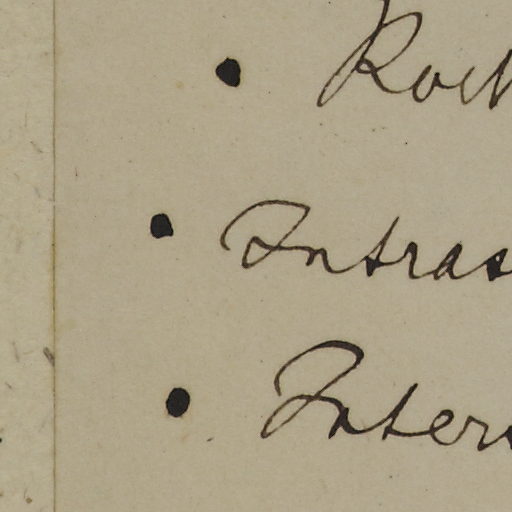 • Roc
• Intras
• Inter